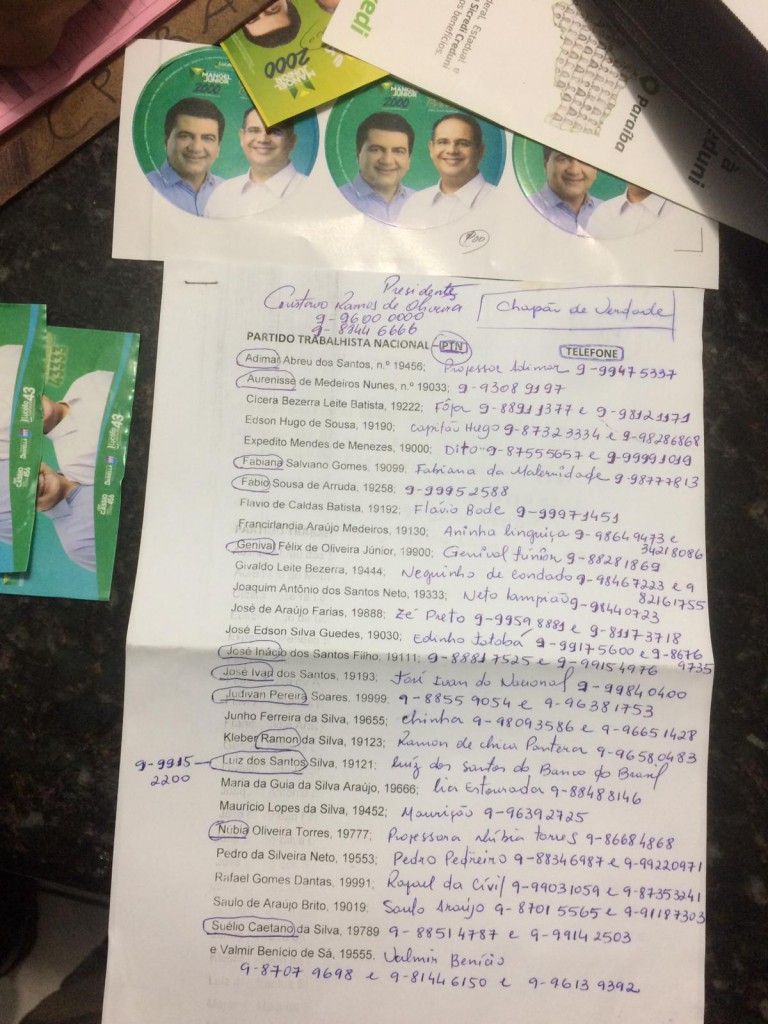 2000
MANOEL JUNIOR
2000
MANOEL JUNIOR
2000
Sicredi Creduni
Paraíba
CPBA
Presidente
Gustavo Ramos de Oliveira
9-9600 0000
9-8944 6666
Chapão de Verdade
PARTIDO TRABALHISTA NACIONAL - PTN TELEFONE
Adimar Abreu dos Santos, n.º 19456; Professor Adimar 9-99475337
Aurenisse de Medeiros Nunes, n.º 19033; 9-9308 9197
Cícera Bezerra Leite Batista, 19222; Fôfa 9-88911377 e 9-98121171
Edson Hugo de Sousa, 19190; Capitão Hugo 9-87323334 e 9-98286868
Expedito Mendes de Menezes, 19000; Dito-9-87555657 e 9-99991019
Fabiana Salviano Gomes, 19099; Fabiana da Maternidade 9-98777813
Fábio Sousa de Arruda, 19258; 9-99952588
Flavio de Caldas Batista, 19192; Flávio Bode 9-99971451
Francirlandia Araújo Medeiros, 19130; Aninha linguiça 9-98649473 e
34218086
Genival Félix de Oliveira Júnior, 19900; Genival Júnior 9-88281869
Givaldo Leite Bezerra, 19444; Neguinho de condado 9-98467223 e 9
82161755
Joaquim Antônio dos Santos Neto, 19333; Neto lampião 9-98440723
José de Araújo Farias, 19888; Zé Preto 9-9959 8881 e 9-81173718
José Edson Silva Guedes, 19030; Edinho Jatobá 9-99175600 e 9-8676
9735
José Inácio dos Santos Filho, 19111; 9-88817525 e 9-99154976
José Ivan dos Santos, 19193; José Ivan do Nacional 9-99840400
Judivan Pereira Soares, 19999; 9-8855 9054 e 9-96381753
Junho Ferreira da Silva, 19655; chinha 9-98093586 e 9-96651428
Kleber Ramon da Silva, 19123; Ramon de chica Pantera 9-96580483
9-9915
2200
Luiz dos Santos Silva, 19121; Luiz dos santos do Banco do Brasil
Maria da Guia da Silva Araújo, 19666; lia Estourada 9-88488146
Mauricio Lopes da Silva, 19452; Maurição 9-96392725
Nubia Oliveira Torres, 19777; Professora Núbia torres 9-86684868
Pedro da Silveira Neto, 19553; Pedro Pedreiro 9-88346987 e 9-99220971
Rafael Gomes Dantas, 19991; Rafael da Civil 9-99031059 e 9-87353241
Saulo de Araujo Brito, 19019; Saulo Araújo 9-8701 5565 e 9-91187303
Suélio Caetano da Silva, 19789 9-88514787 e 9-99142503
e Valmir Benício de Sá, 19555. Valmir Benício
9-8707 9698 e 9-8144 6150 e 9-9613 9392